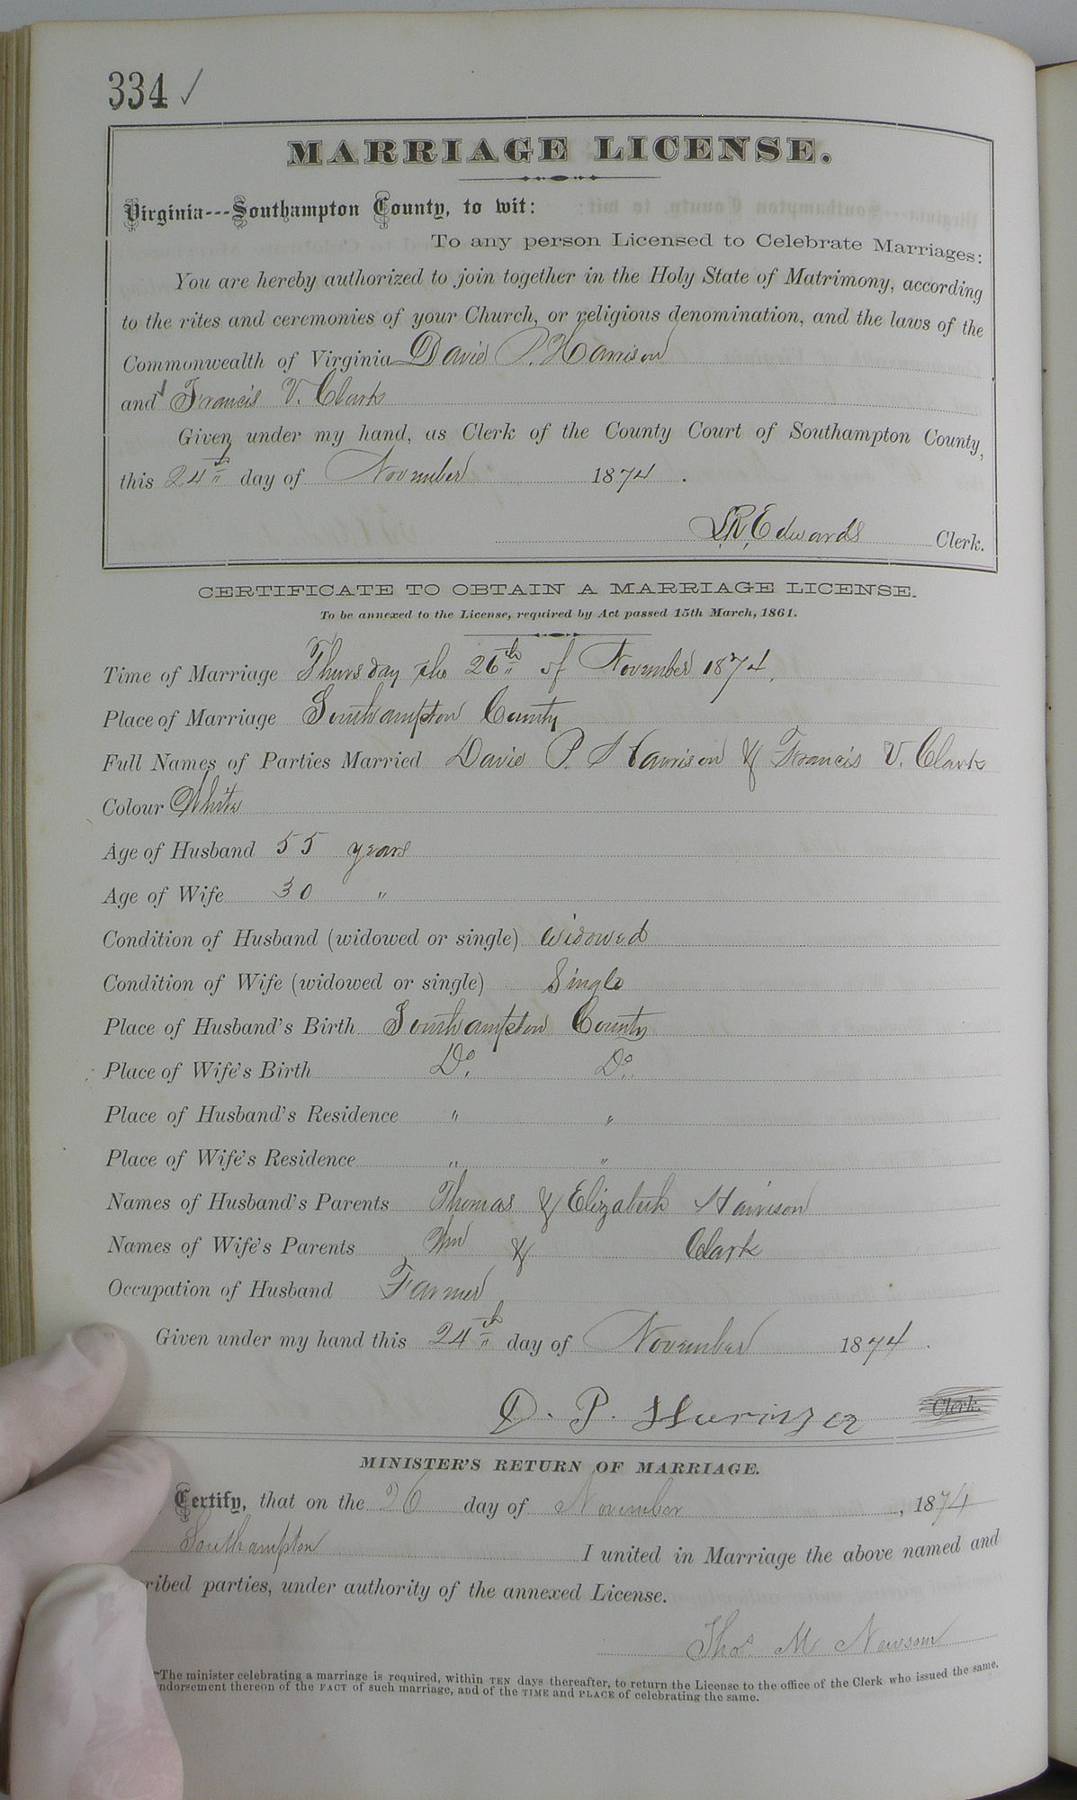 334 ✓
MARRIAGE LICENSE.
Virginia---Southampton County, to wit:
To any person Licensed to Celebrate Marriages:
You are hereby authorized to join together in the Holy State of Matrimony, according
to the rites and ceremonies of your Church, or religious denomination, and the laws of the
Commonwealth of Virginia David P. Harrison
and Francis V. Clark
Given under my hand, as Clerk of the County Court of Southampton County,
this 24th day of November 1874.
L.R. Edwards Clerk.
CERTIFICATE TO OBTAIN A MARRIAGE LICENSE.
To be annexed to the License, required by Act passed 15th March, 1861.
Time of Marriage Thursday the 26th of November 1874.
Place of Marriage Southampton County
Full Names of Parties Married David P. Harrison & Francis V. Clark
Colour White
Age of Husband 55 years
Age of Wife 30 "
Condition of Husband (widowed or single) Widowed
Condition of Wife (widowed or single) Single
Place of Husband's Birth Southampton County
Place of Wife's Birth Do. Do.
Place of Husband's Residence " "
Place of Wife's Residence " "
Names of Husband's Parents Thomas & Elizabeth Harrison
Names of Wife's Parents Wm & Clark
Occupation of Husband Farmer
Given under my hand this 24th day of November 1874.
D. P. Clerk.
MINISTER'S RETURN OF MARRIAGE.
Certify, that on the 26 day of November, 1874
Southampton I united in Marriage the above named and
ribed parties, under authority of the annexed License.
Thos. M. Newsom
The minister celebrating a marriage is required, within TEN days thereafter, to return the License to the office of the Clerk who issued the same,
ndorsement thereon of the FACT of such marriage, and of the TIME and PLACE of celebrating the same.